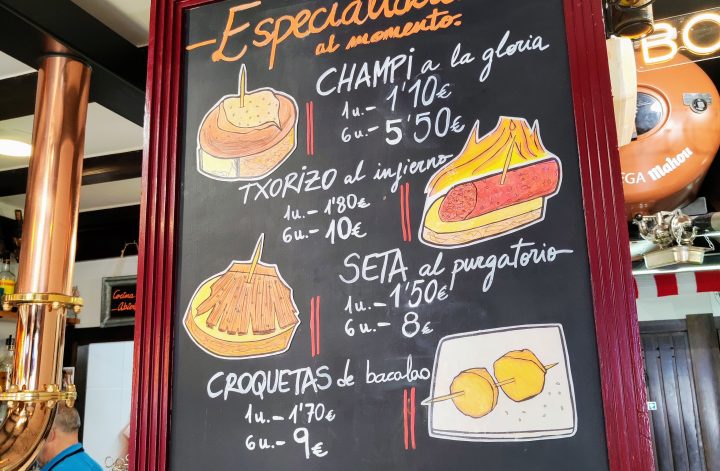 al momento.
CHAMPI a la gloria
1u.- 1'10€
6u.- 5'50€
TXORIZO al infierno
1u.- 1'80€
6u.- 10€
SETA al purgatorio
1u.- 1'50€
6u.- 8€
CROQUETAS de bacalao
1u.- 1'70€
6u.- 9€
BO
EGA Mahou
Cocina